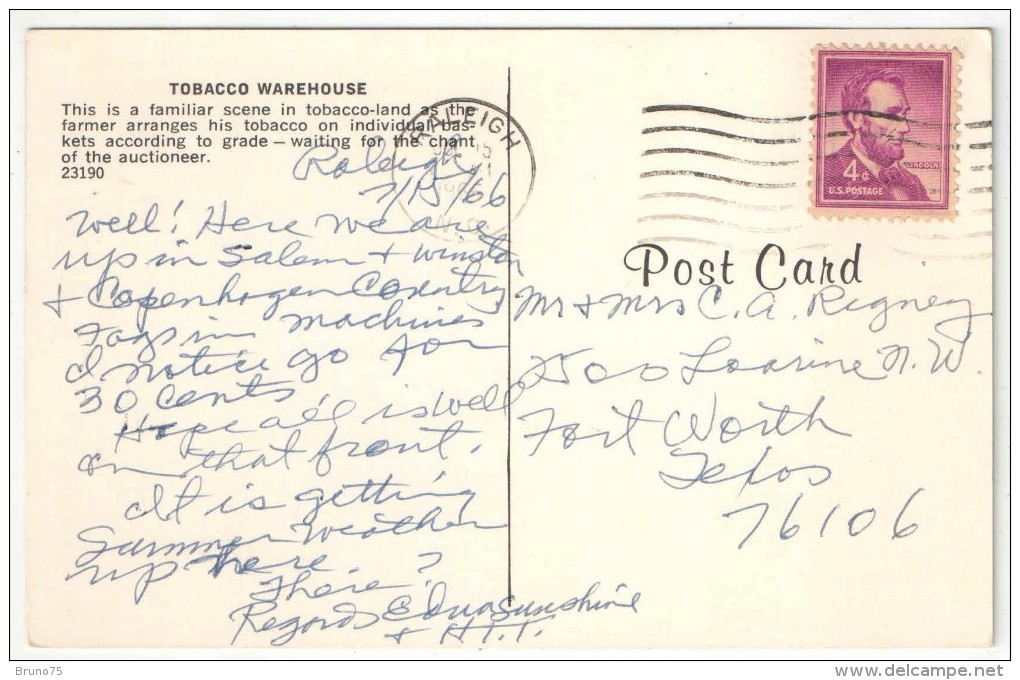 TOBACCO WAREHOUSE
This is a familiar scene in tobacco-land as the
farmer arranges his tobacco on individual bas-
kets according to grade — waiting for the chant
of the auctioneer.
23190
RALEIGH
Raleigh
7/15/66
Well! Here we are
up in Salem + Winston
+ Copenhagen Country
Fags in machines
I notice go for
30 cents.
Hope all is well
on that front.
It is getting
Summer Weather
up here
There?
Regards Edna Sunshine
+ H.T.T.
LINCOLN
4¢
U.S. POSTAGE
Post Card
Mr + Mrs C. A. Rigney
2500 Loarine N. W.
Fort Worth
Texas
76106
Bruno75
http://www.delcampe.net